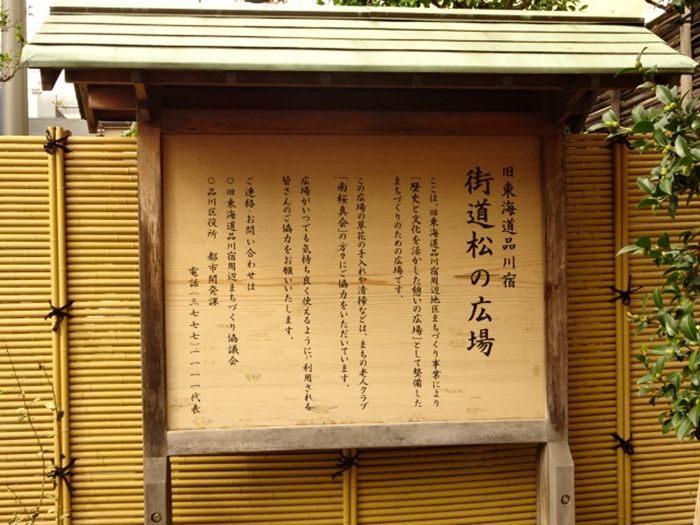 旧東海道品川宿
街道松の広場
ここは、旧東海道品川宿周辺地区まちづくり事業により
「歴史と文化を活かした憩いの広場」として整備した
まちづくりのための広場です。
この広場の草花の手入れや清掃などは、まちの老人クラブ
「南桜真会」の方々にご協力をいただいています。
広場がいつでも気持ち良く使えるように、利用される
皆さんのご協力をお願いいたします。
ご連絡 お問い合わせは
○旧東海道品川宿周辺まちづくり協議会
○品川区役所 都市開発課
電話 三七七七-一一一一 代表